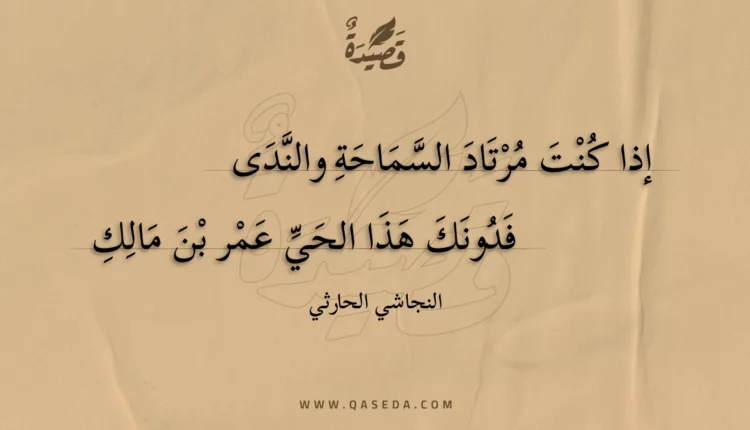 قَصِيدَةٌ
إذا كُنْتَ مُرْتَادَ السَّمَاحَةِ والنَّدَى
فَدُونَكَ هَذَا الحَيِّ عَمْر بْنَ مَالِكِ
النجاشي الحارثي
WWW.QASEDA.COM